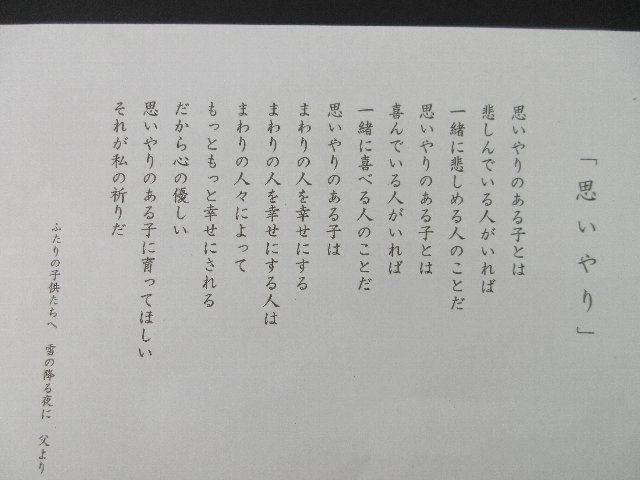 「思いやり」
思いやりのある子とは
悲しんでいる人がいれば
一緒に悲しめる人のことだ
思いやりのある子とは
喜んでいる人がいれば
一緒に喜べる人のことだ
思いやりのある子は
まわりの人を幸せにする
まわりの人を幸せにする人は
まわりの人々によって
もっともっと幸せにされる
だから心の優しい
思いやりのある子に育ってほしい
それが私の祈りだ
ふたりの子供たちへ　雪の降る夜に　父より